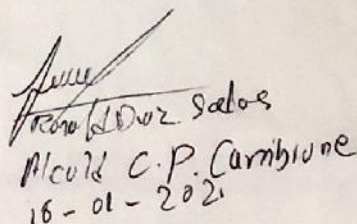 Ronald Diaz Salas
Alcald C.P. Carribione
18-01-2021